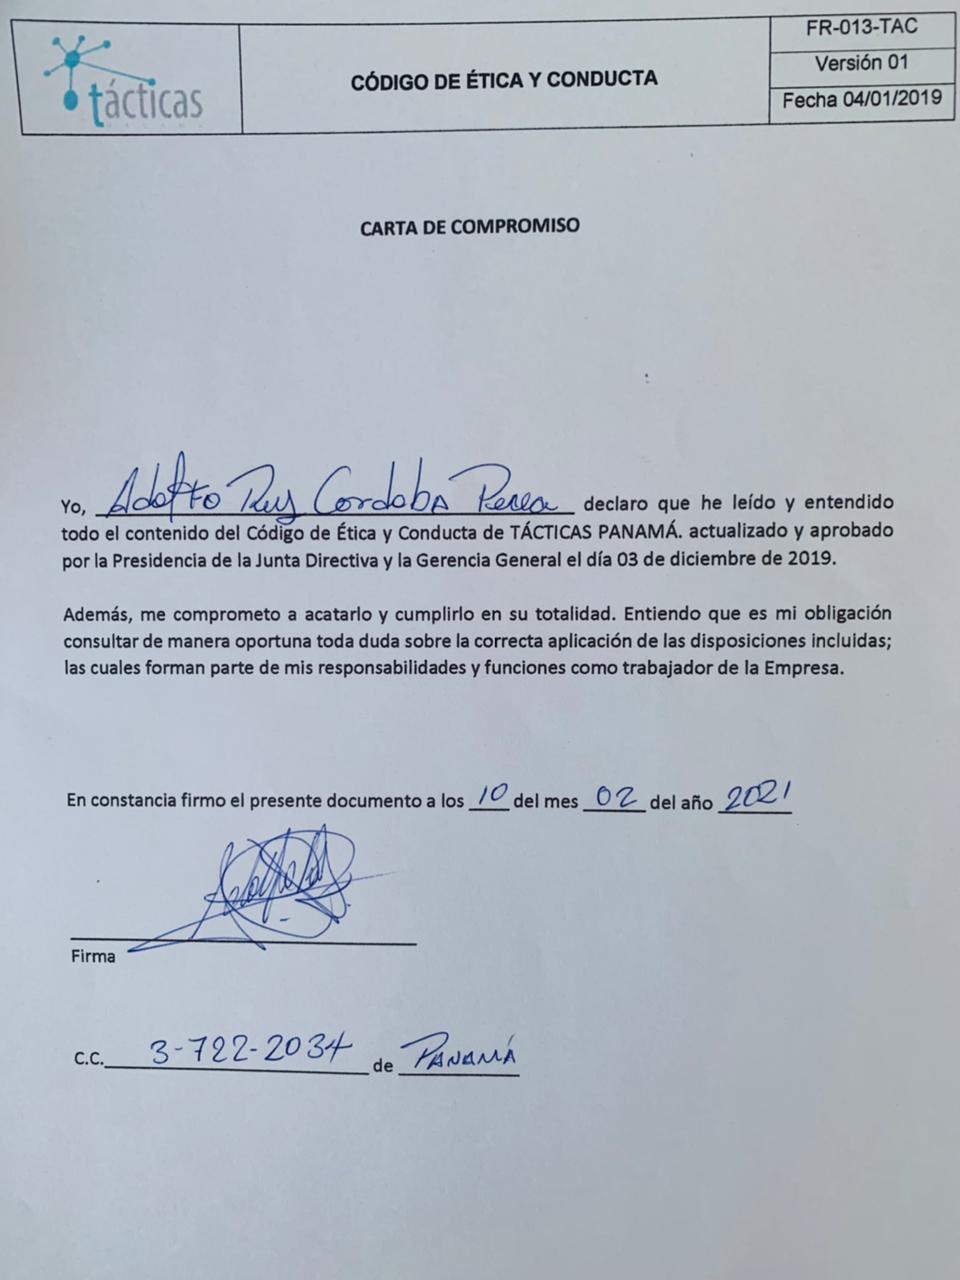 tácticas
CÓDIGO DE ÉTICA Y CONDUCTA
FR-013-TAC
Versión 01
Fecha 04/01/2019
CARTA DE COMPROMISO
Yo, Adolfo Ruy Cordoba Perea declaro que he leído y entendido
todo el contenido del Código de Ética y Conducta de TÁCTICAS PANAMÁ. actualizado y aprobado
por la Presidencia de la Junta Directiva y la Gerencia General el día 03 de diciembre de 2019.
Además, me comprometo a acatarlo y cumplirlo en su totalidad. Entiendo que es mi obligación
consultar de manera oportuna toda duda sobre la correcta aplicación de las disposiciones incluidas;
las cuales forman parte de mis responsabilidades y funciones como trabajador de la Empresa.
En constancia firmo el presente documento a los 10 del mes 02 del año 2021
Firma
C.C. 3-722-2034 de PANAMÁ